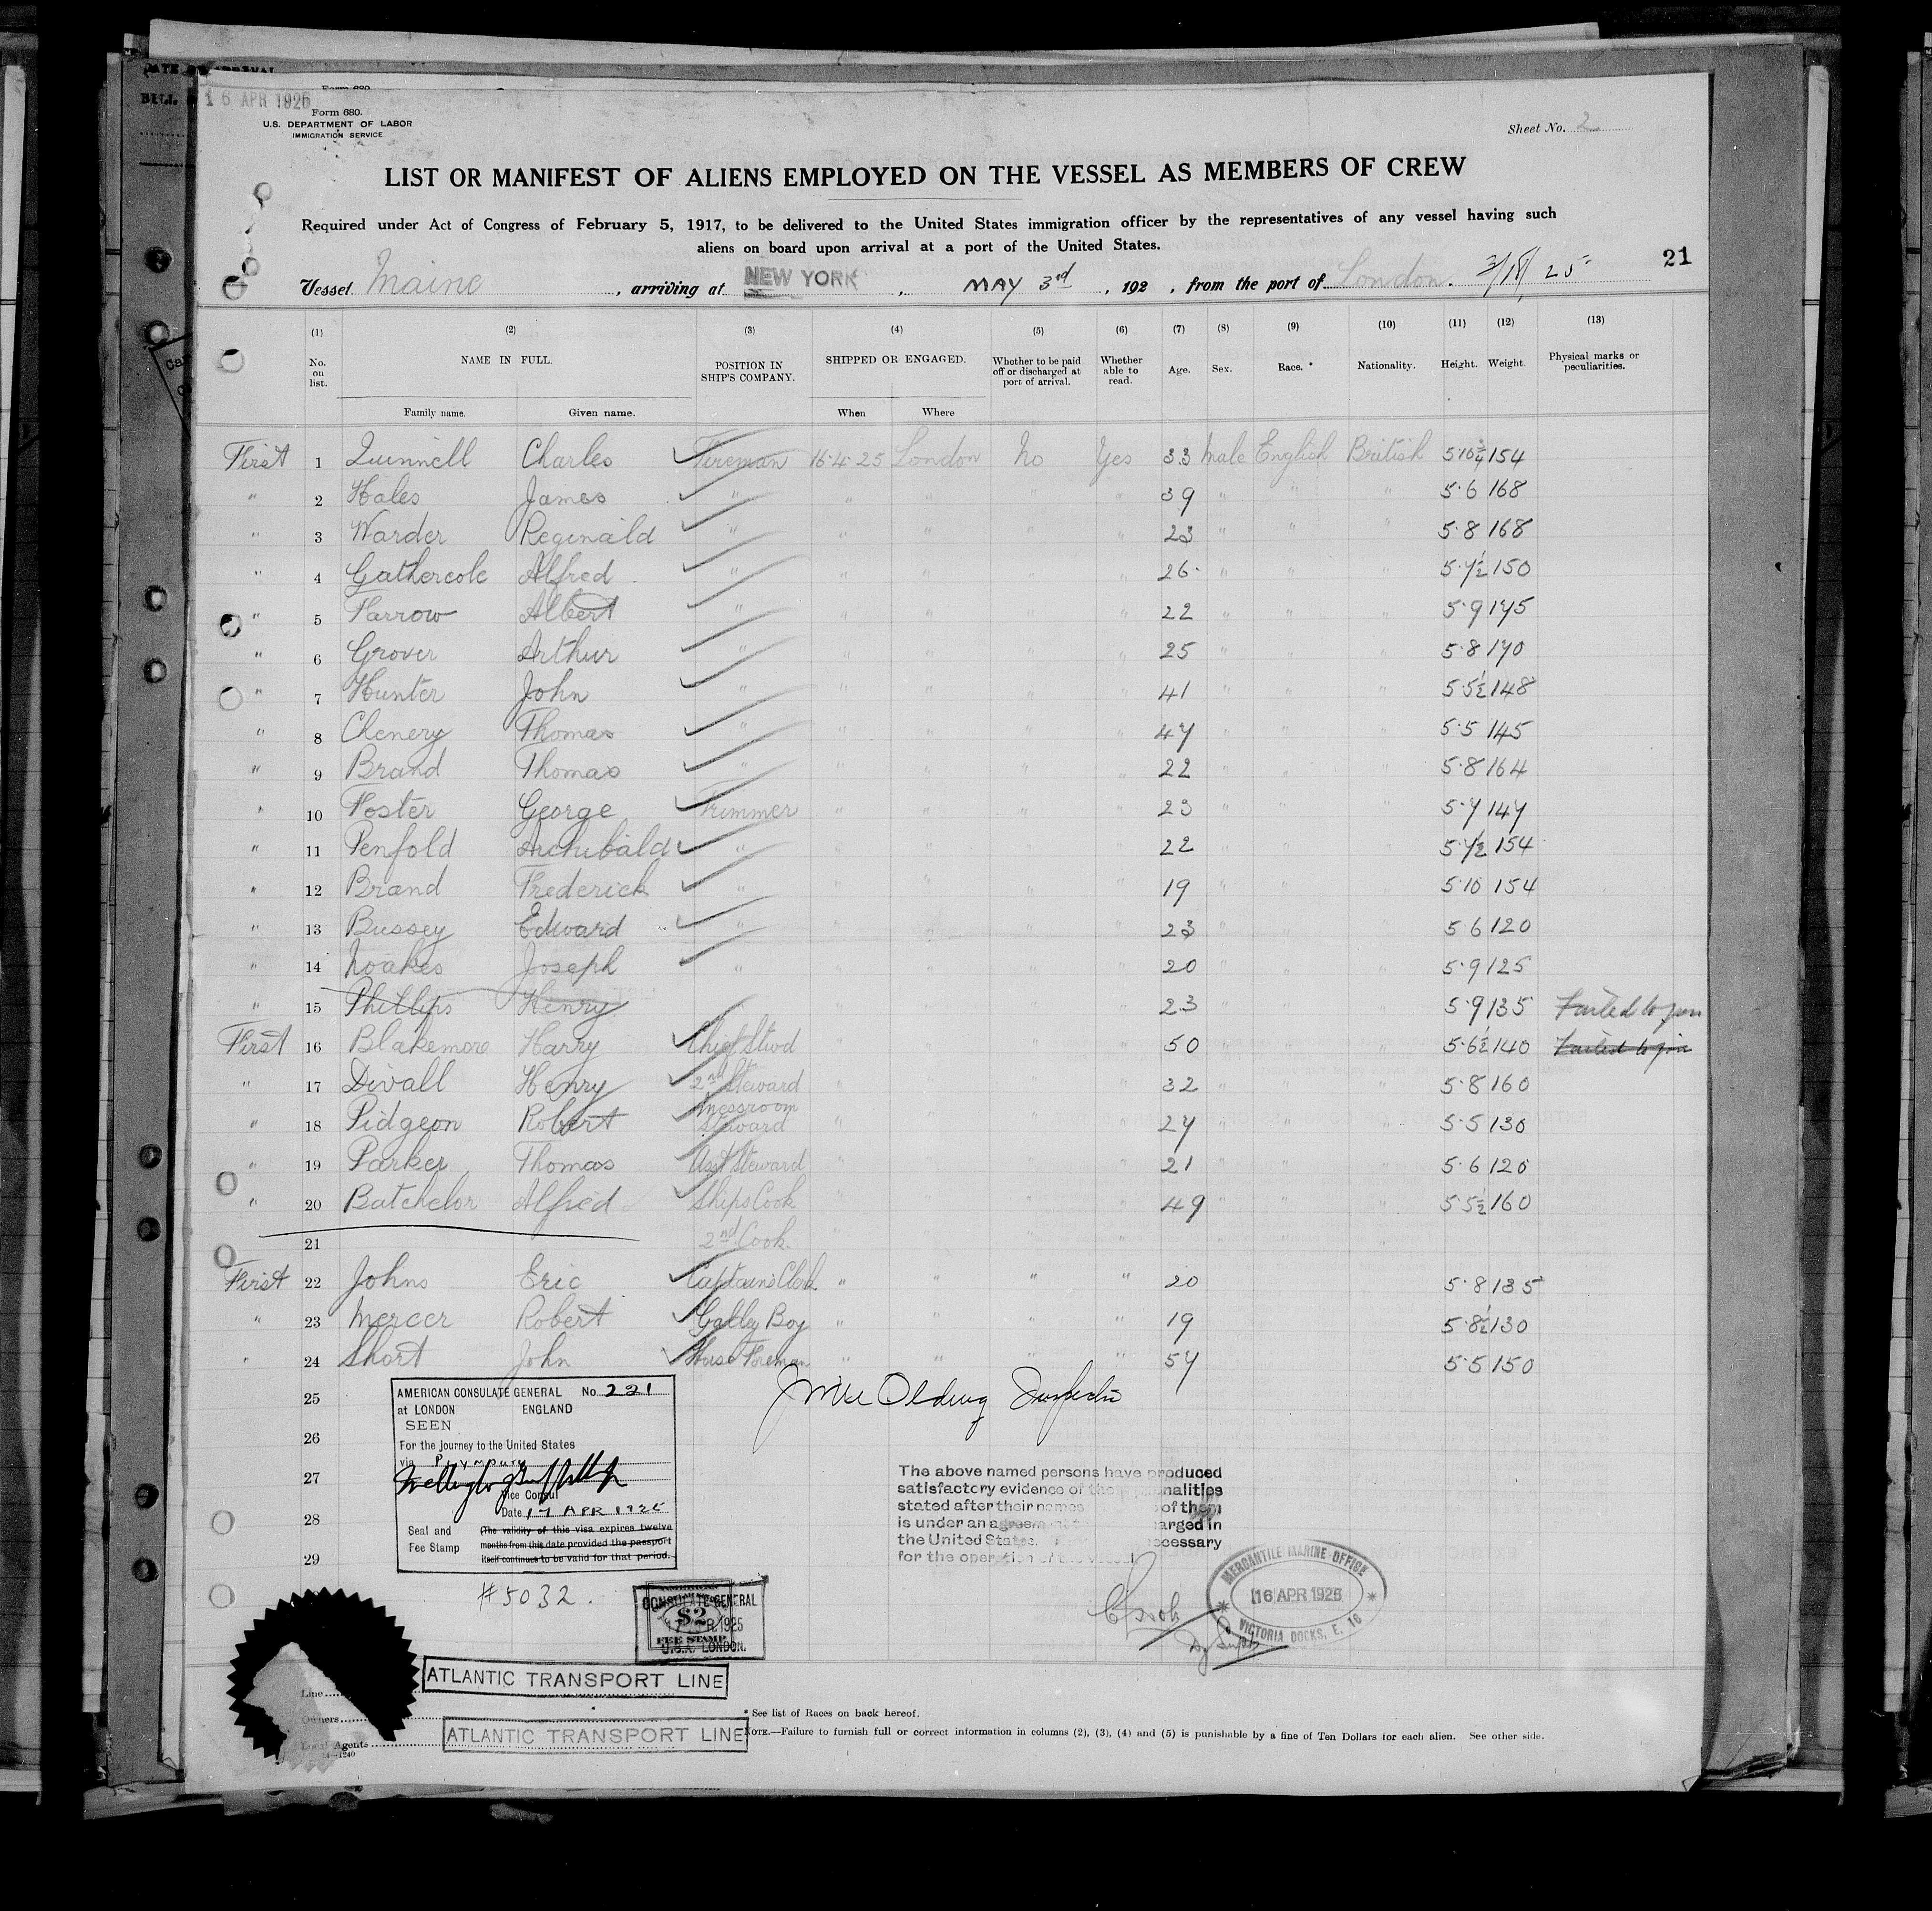 16 APR 1925
Form 680.
U.S. DEPARTMENT OF LABOR
IMMIGRATION SERVICE
Sheet No. 2
LIST OR MANIFEST OF ALIENS EMPLOYED ON THE VESSEL AS MEMBERS OF CREW
Required under Act of Congress of February 5, 1917, to be delivered to the United States immigration officer by the representatives of any vessel having such
aliens on board upon arrival at a port of the United States.
21
Vessel Maine, arriving at NEW YORK, MAY 3rd, 192 , from the port of London.
(1) (2) (3) (4) (5) (6) (7) (8) (9) (10) (11) (12) (13)
No. on list. NAME IN FULL. POSITION IN SHIP'S COMPANY. SHIPPED OR ENGAGED. Whether to be paid off or discharged at port of arrival. Whether able to read. Age. Sex. Race.* Nationality. Height. Weight. Physical marks or peculiarities.
Family name. Given name. When Where
First 1 Quinnell Charles Fireman 16·4·25 London No Yes 33 Male English British 5·10¾ 154
" 2 Hales James " " " " " 39 " " " 5·6 168
" 3 Warder Reginald " " " " " 23 " " " 5·8 168
" 4 Gathercole Alfred " " " " " 26 " " " 5·7½ 150
" 5 Farrow Albert " " " " " 22 " " " 5·9 175
" 6 Grover Arthur " " " " " 25 " " " 5·8 170
" 7 Hunter John " " " " " 41 " " " 5·5½ 148
" 8 Chenery Thomas " " " " " 47 " " " 5·5 145
" 9 Brand Thomas " " " " " 22 " " " 5·8 164
" 10 Foster George Trimmer " " " " 23 " " " 5·7 147
" 11 Penfold Archibald " " " " " 22 " " " 5·7½ 154
" 12 Brand Frederick " " " " " 19 " " " 5·10 154
" 13 Bussey Edward " " " " " 23 " " " 5·6 120
" 14 Noakes Joseph " " " " " 20 " " " 5·9 125
" 15 Phillips Henry " " " " 23 " " " 5·9 135 Failed to join
First 16 Blakemore Harry Chief Stwd " " " " 50 " " " 5·6½ 140 Failed to join
" 17 Divall Henry 2nd Steward " " " " 32 " " " 5·8 160
" 18 Pidgeon Robert Messroom Steward " " " " 27 " " " 5·5 130
" 19 Parker Thomas Asst Steward " " " " 21 " " " 5·6 120
" 20 Batchelor Alfred Ships Cook " " " " 49 " " " 5·5½ 160
21 2nd Cook
First 22 Johns Eric Captain's Clerk " " " " 20 5·8 135
" 23 Mercer Robert Galley Boy " " " " 19 5·8½ 130
" 24 Short John Horse Foreman " " " " 57 5·5 150
25
26
27
28
29
AMERICAN CONSULATE GENERAL No. 221
at LONDON ENGLAND
SEEN
For the journey to the United States
via
Vice Consul
Date 17 APR 1925
Seal and Fee Stamp
The validity of this visa expires twelve
months from this date provided the passport
itself continues to be valid for that period.
#5032.
CONSULATE GENERAL
$2
1925
FEE STAMP
U.S.A. LONDON.
The above named persons have produced
satisfactory evidence of the nationalities
stated after their names of them
is under an agreement arged in
the United States. cessary
for the operation of the vessel
MERCANTILE MARINE OFFICE
16 APR 1925
VICTORIA DOCKS, E. 16
ATLANTIC TRANSPORT LINE
Line
Owners
ATLANTIC TRANSPORT LINE
Local Agents
14—1240
* See list of Races on back hereof.
NOTE.—Failure to furnish full or correct information in columns (2), (3), (4) and (5) is punishable by a fine of Ten Dollars for each alien. See other side.